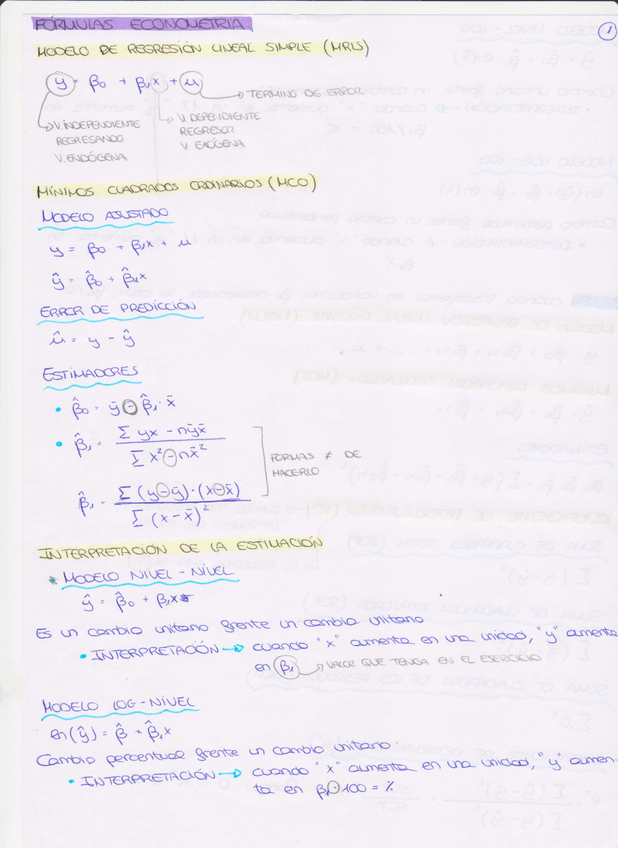 FÓRMULAS ECONOMETRIA
1
MODELO DE REGRESIÓN LINEAL SIMPLE (MRLS)
y = β₀ + β₁x + μ
TERMINO DE ERROR
V. INDEPENDIENTE
REGRESANDO
V. ENDÓGENA
V. DEPENDIENTE
REGRESOR
V EXÓGENA
MÍNIMOS CUADRADOS ORDINARIOS (MCO)
MODELO AJUSTADO
y = β₀ + β₁x + μ
ŷ = β̂₀ + β̂₁x
ERROR DE PREDICCIÓN
μ̂ = y - ŷ
ESTIMADORES
• β̂₀ = ȳ - β̂₁ · x̄
• β̂₁ = Σ yx - nȳx̄ / Σ x² - nx̄²
β̂₁ = Σ (y - ȳ) · (x - x̄) / Σ (x - x̄)²
FORMAS ≠ DE
HACERLO
INTERPRETACIÓN DE LA ESTIMACIÓN
* MODELO NIVEL - NIVEL
ŷ = β̂₀ + β₁x
Es un cambio unitario frente un cambio unitario
• INTERPRETACIÓN → cuando "x" aumenta en una unidad, "y" aumenta
en β₁ → VALOR QUE TENGA EN EL EJERCICIO
MODELO LOG - NIVEL
en(ŷ) = β̂ + β̂₁x
Cambio percentual frente un cambio unitario.
• INTERPRETACIÓN → cuando "x" aumenta en una unidad, "y" aumen-
ta en β₁ · 100 = %